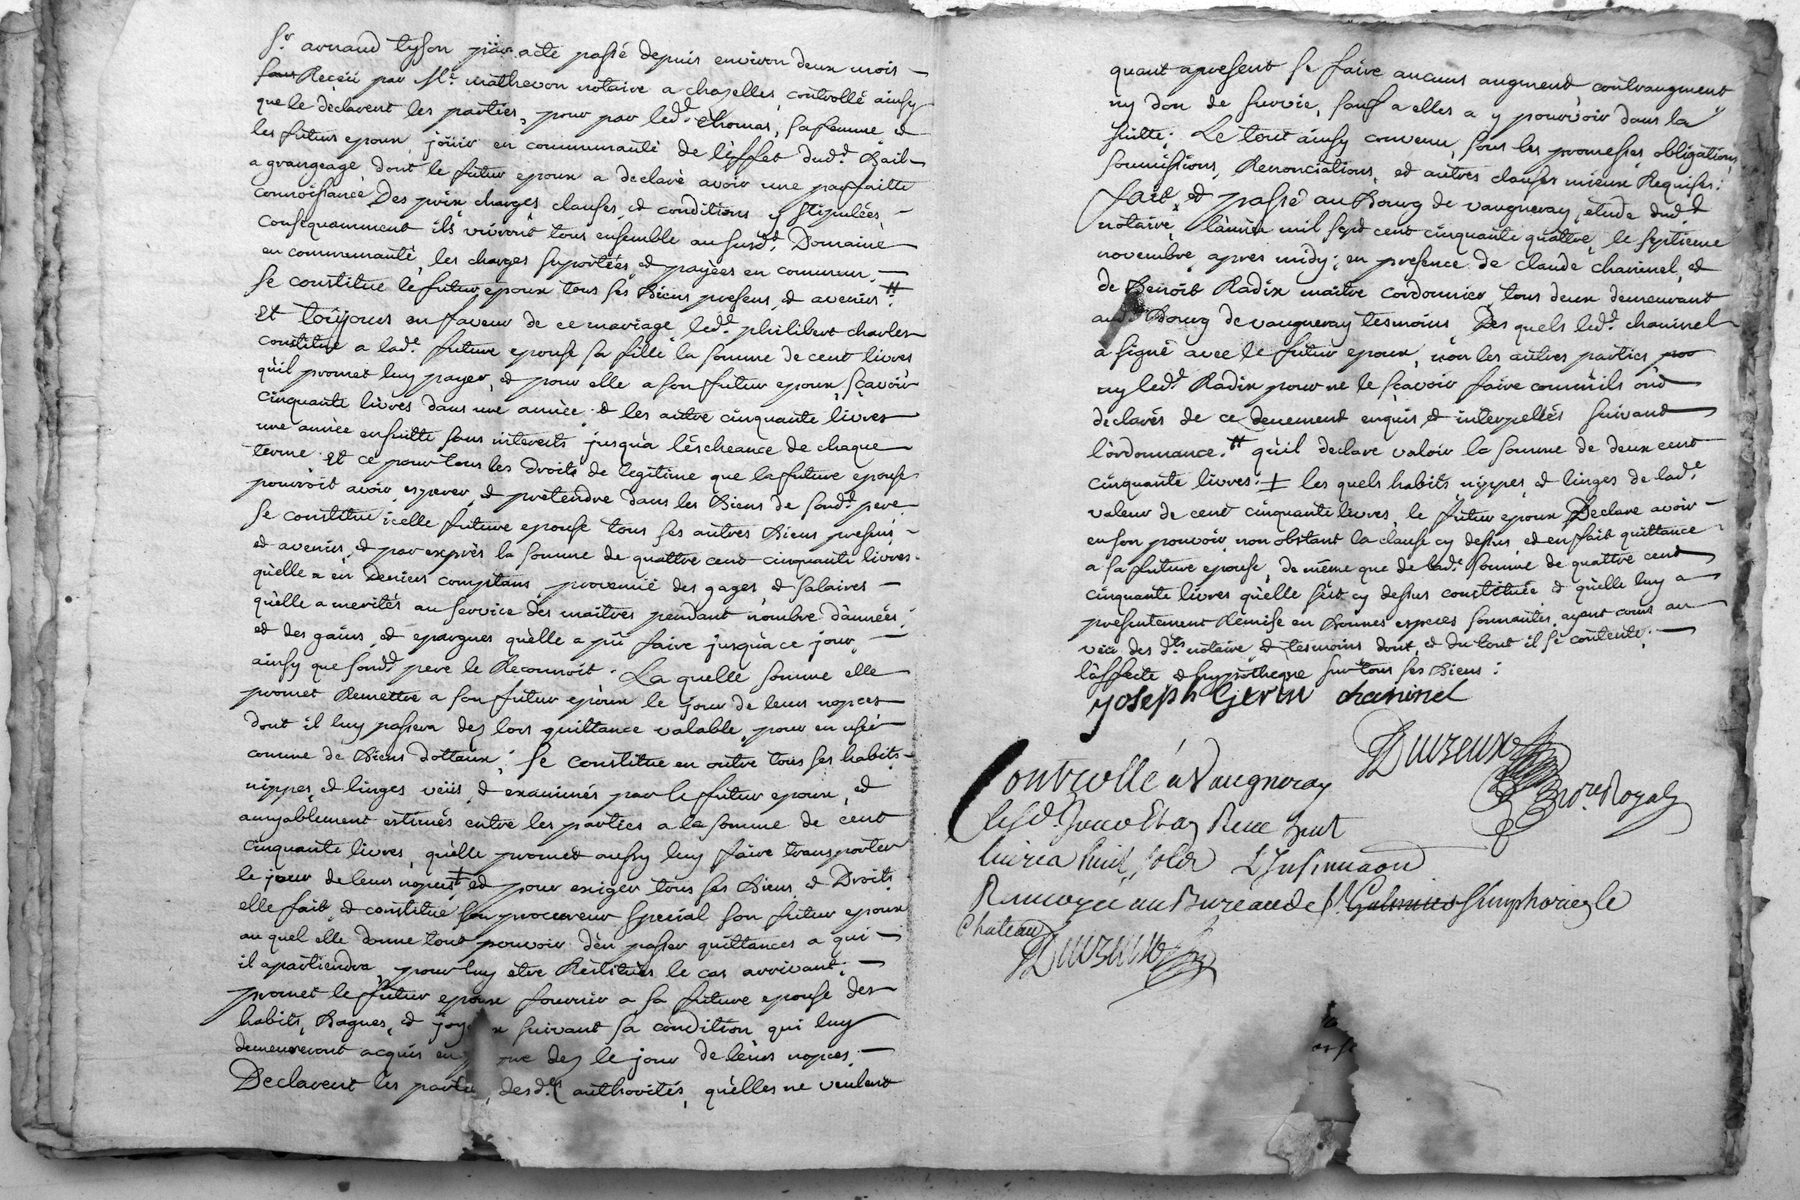 Sr. arnaud tyson par acte passé depuis environ deux mois
sous Receü par Me. mathevon notaire a chazelles, controllé ainsy
que le déclarent les parties, pour par led. thomas, sa femme et
les futurs epoux, joüir en communauté de l'effet dud. Bail
a grangeage, dont le futur epoux a declaré avoir une parfaitte
connoissance Des prix charges clauses, et conditions y stipulées
consequamment ils vivront tous ensemble au susd. Domaine
en communauté, les charges suportées, et payées en commun,
se constitue le futur epoux tous ses Biens presens, et avenirs #.
Et toujours en faveur de ce mariage, led. philibert charles
constitue a lade. future epouse sa fille la somme de cent livres
qu'il promet luy payer, et pour elle a son futur epoux, sçavoir
cinquante livres dans une année et les autre cinquante livres
une année ensuitte sans interests jusqu'a l'escheance de chaque
terme. Et ce pour tous les droits de legitime que la future epouse
pourroit avoir, esperer, et prétendre dans les Biens de sond. pere
se constitue icelle future epouse tous ses autres Biens presens,
et avenirs, et par exprès la somme de quattre cent cinquante livres.
qu'elle a en deniers comptans, provenüe des gages, et salaires
qu'elle a merités au service des maitres pendant nombre d'années,
et des gains, et epargnes qu'elle a pü faire jusqu'a ce jour,
ainsy que sond. pere le Reconnoit. La quelle somme elle
promet Remettre a son futur epoux le jour de leurs nopces
dont il luy passera dez lors quittance valable, pour en usér
comme de Biens dottaux; se constitue en outre tous ses habits
nippes, et linges veüs, et examinés par le futur epoux, et
amyablement estimés entre les parties a la somme de cent
cinquante livres, qu'elle promet aussy luy faire transporter
le jour de leurs nopces ‡ et pour exiger tous ses Biens, et Droits
elle fait, et constitue son procureur special son futur epoux
au quel elle donne tout pouvoir d'en passer quittances a qui
il apartiendra, pour luy etre Restitués le cas arrivant.
promet le futur epoux fournir a sa future epouse des
habits, Bagues, et suivant sa condition, qui luy
demeureront acquis dez le jour de leurs nopces.
Declarent les desd. authorités, qu'elles ne veulent
quant apresent se faire aucuns augment contraugment
ny don de survie, sauf a elles a y pourvoir dans la
suitte; Le tout ainsy convenu, sous les promesses, obligations,
soumissions, Renonciations, et autres clauses mieux Requises:
fait, et passé au Bourg de vaugneray, etude dud.
notaire, l'année mil sept cent cinquante quattre, le septieme
novembre, apres midy; en presence de claude chaninel, et
de Benoît Radix maitre cordonnier, tous deux demeurant
aud. Bourg de vaugneray tesmoins Des quels led. chaninel
a signé avec le futur epoux, non les autres parties pro
ny led. Radix pour ne le sçavoir faire comm'ils ont
declarés de ce deuement enquis, et interpellés suivant
l'ordonnance. # qu'il declare valoir la somme de deux cent
cinquante livres: ‡ les quels habits nippes, et linges de lad.
valeur de cent cinquante livres, le futur epoux Declare avoir
en son pouvoir, non obstant la clause cy dessus, et en fait quittance
a sa future epouse, de même que de lade. somme de quattre cent
cinquante livres qu'elle s'est cy dessus constituée et qu'elle luy a
presentement Remise en Bonnes especes sonnantes, ayant cours au
veu des dts. notaire, et tesmoins dont, et du tout il se contente.
l'affecte et hypotheque sur tous ses Biens:
joseph Gerin chaninel
Duizeux
Nore. Royal
Controllé a Vaugneray
huit
Livres huit sols L'Insinuaon
Renvoyée au Bureau de St. Galmier Simphorien le
Chateau
Duizeux